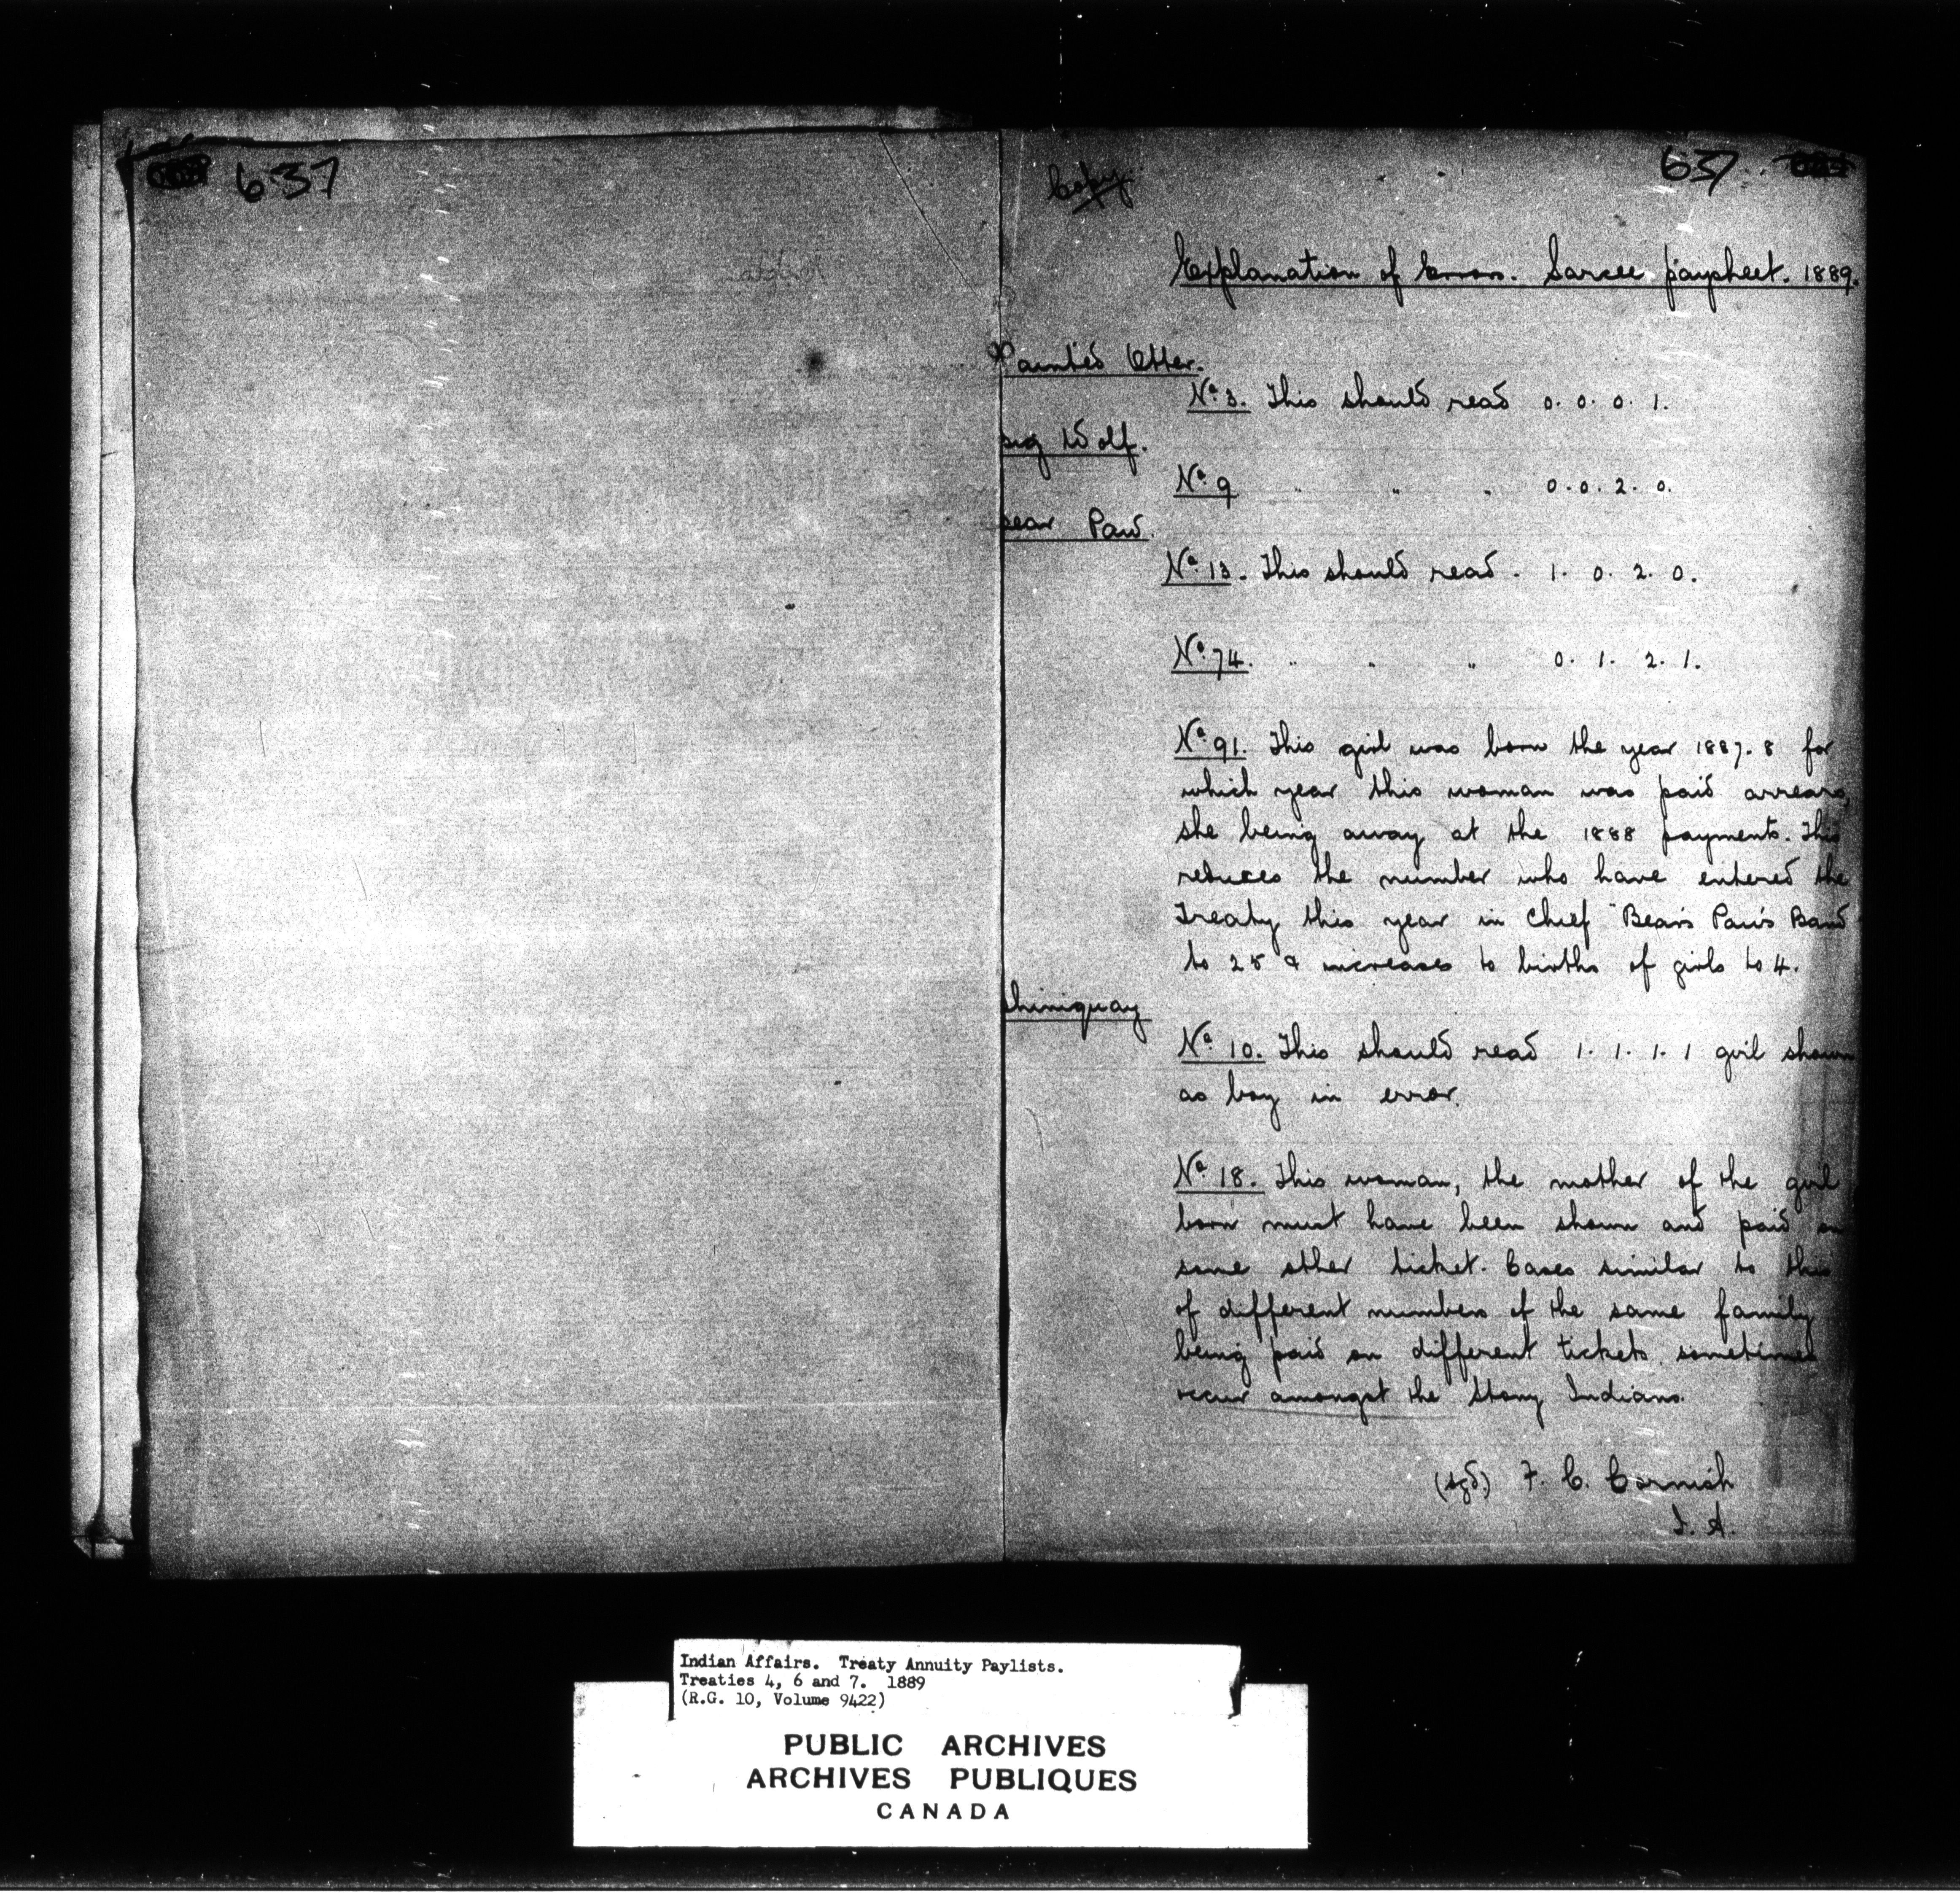 637
637
Copy
Explanation of Errors. Sarcee paysheet. 1889.
Painted Otter.
No. 3. This should read 0. 0. 0. 1.
Big Wolf.
No. 9 " " " 0. 0. 2. 0.
Bear Paw.
No. 13. This should read - 1. 0. 2. 0.
No. 74. " " " 0. 1. 2. 1.
No. 91. This girl was born the year 1887-8 for
which year this woman was paid arrears,
she being away at the 1888 payments. This
reduces the number who have entered the
Treaty this year in Chief "Bear's Paw's Band
to 28 & increases to births of girls to 4.
Chiniquay
No. 10. This should read 1. 1. 1. 1 girl shown
as boy in error.
No. 18. This woman, the mother of the girl
born must have been shown and paid on
some other ticket. Cases similar to this
of different numbers of the same family
being paid on different tickets sometimes
occur amongst the Stony Indians.
(sgd.) F. C. Cornish
I. A.
Indian Affairs. Treaty Annuity Paylists.
Treaties 4, 6 and 7. 1889
(R.G. 10, Volume 9422)
PUBLIC ARCHIVES
ARCHIVES PUBLIQUES
CANADA